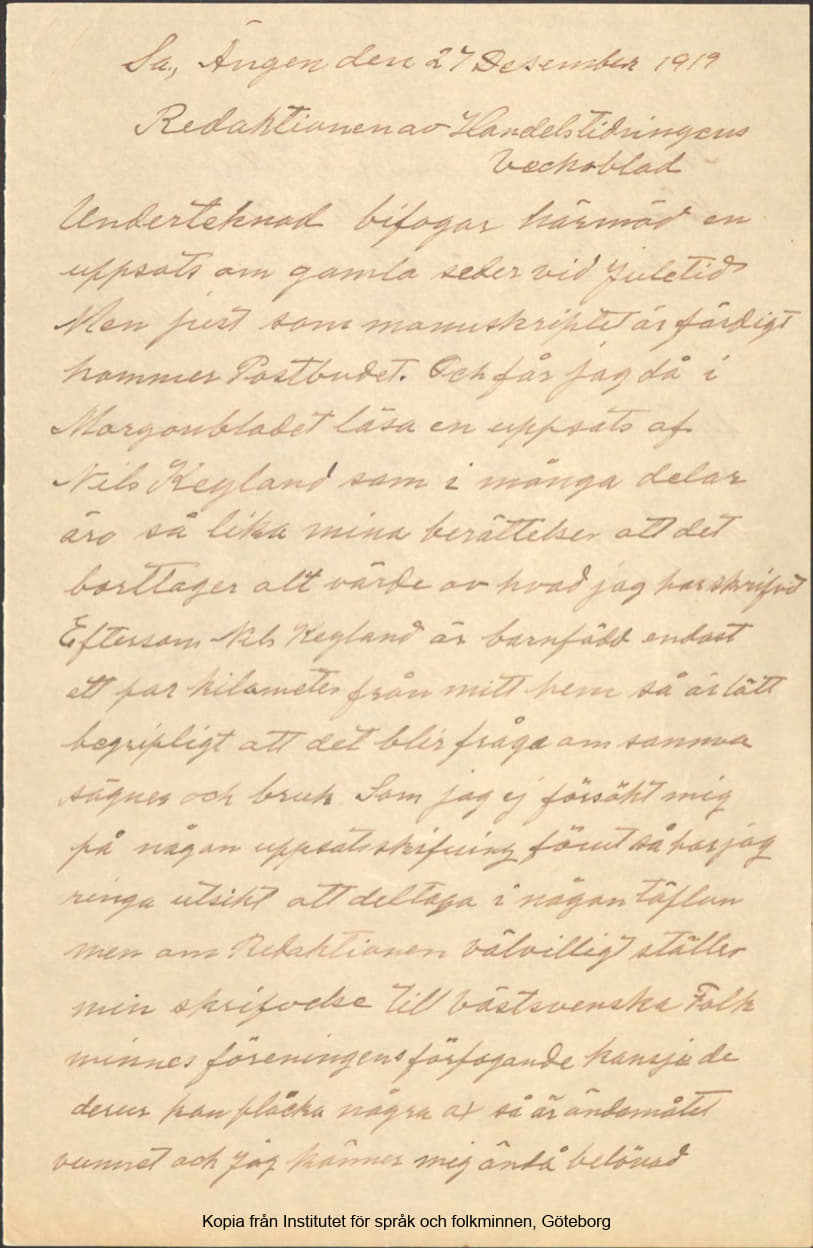 Sa., Ängen den 27 Desember 1919
Redaktionen av Handelstidningens
Veckoblad
Underteknad bifogar härmäd en
uppsats om gamla seder vid Juletid
Men just som manuskriptet är färdigt
kommer Postbudet. Och får jag då i
Morgonbladet läsa en uppsats af
Nils Keyland som i många delar
äro så lika mina berättelser att det
borttager alt värde av hvad jag har skrifvit
Eftersom Nils Keyland är barnfödd endast
ett par kilometer från mitt hem så är lätt
begripligt att det blir fråga om samma
sägner och bruk. Som jag ej försökt mig
på någon uppsatsskrifning förut så har jag
ringa utsikt att deltaga i någon täflan
men om Redaktionen välvilligt ställer
min skrifvelse till Västsvenska Folk
minnes föreningens förfogande kansje de
derur kan plåcka några ax så är ändamålet
vunnet och jag känner mig ändå belönad
Kopia från Institutet för språk och folkminnen, Göteborg